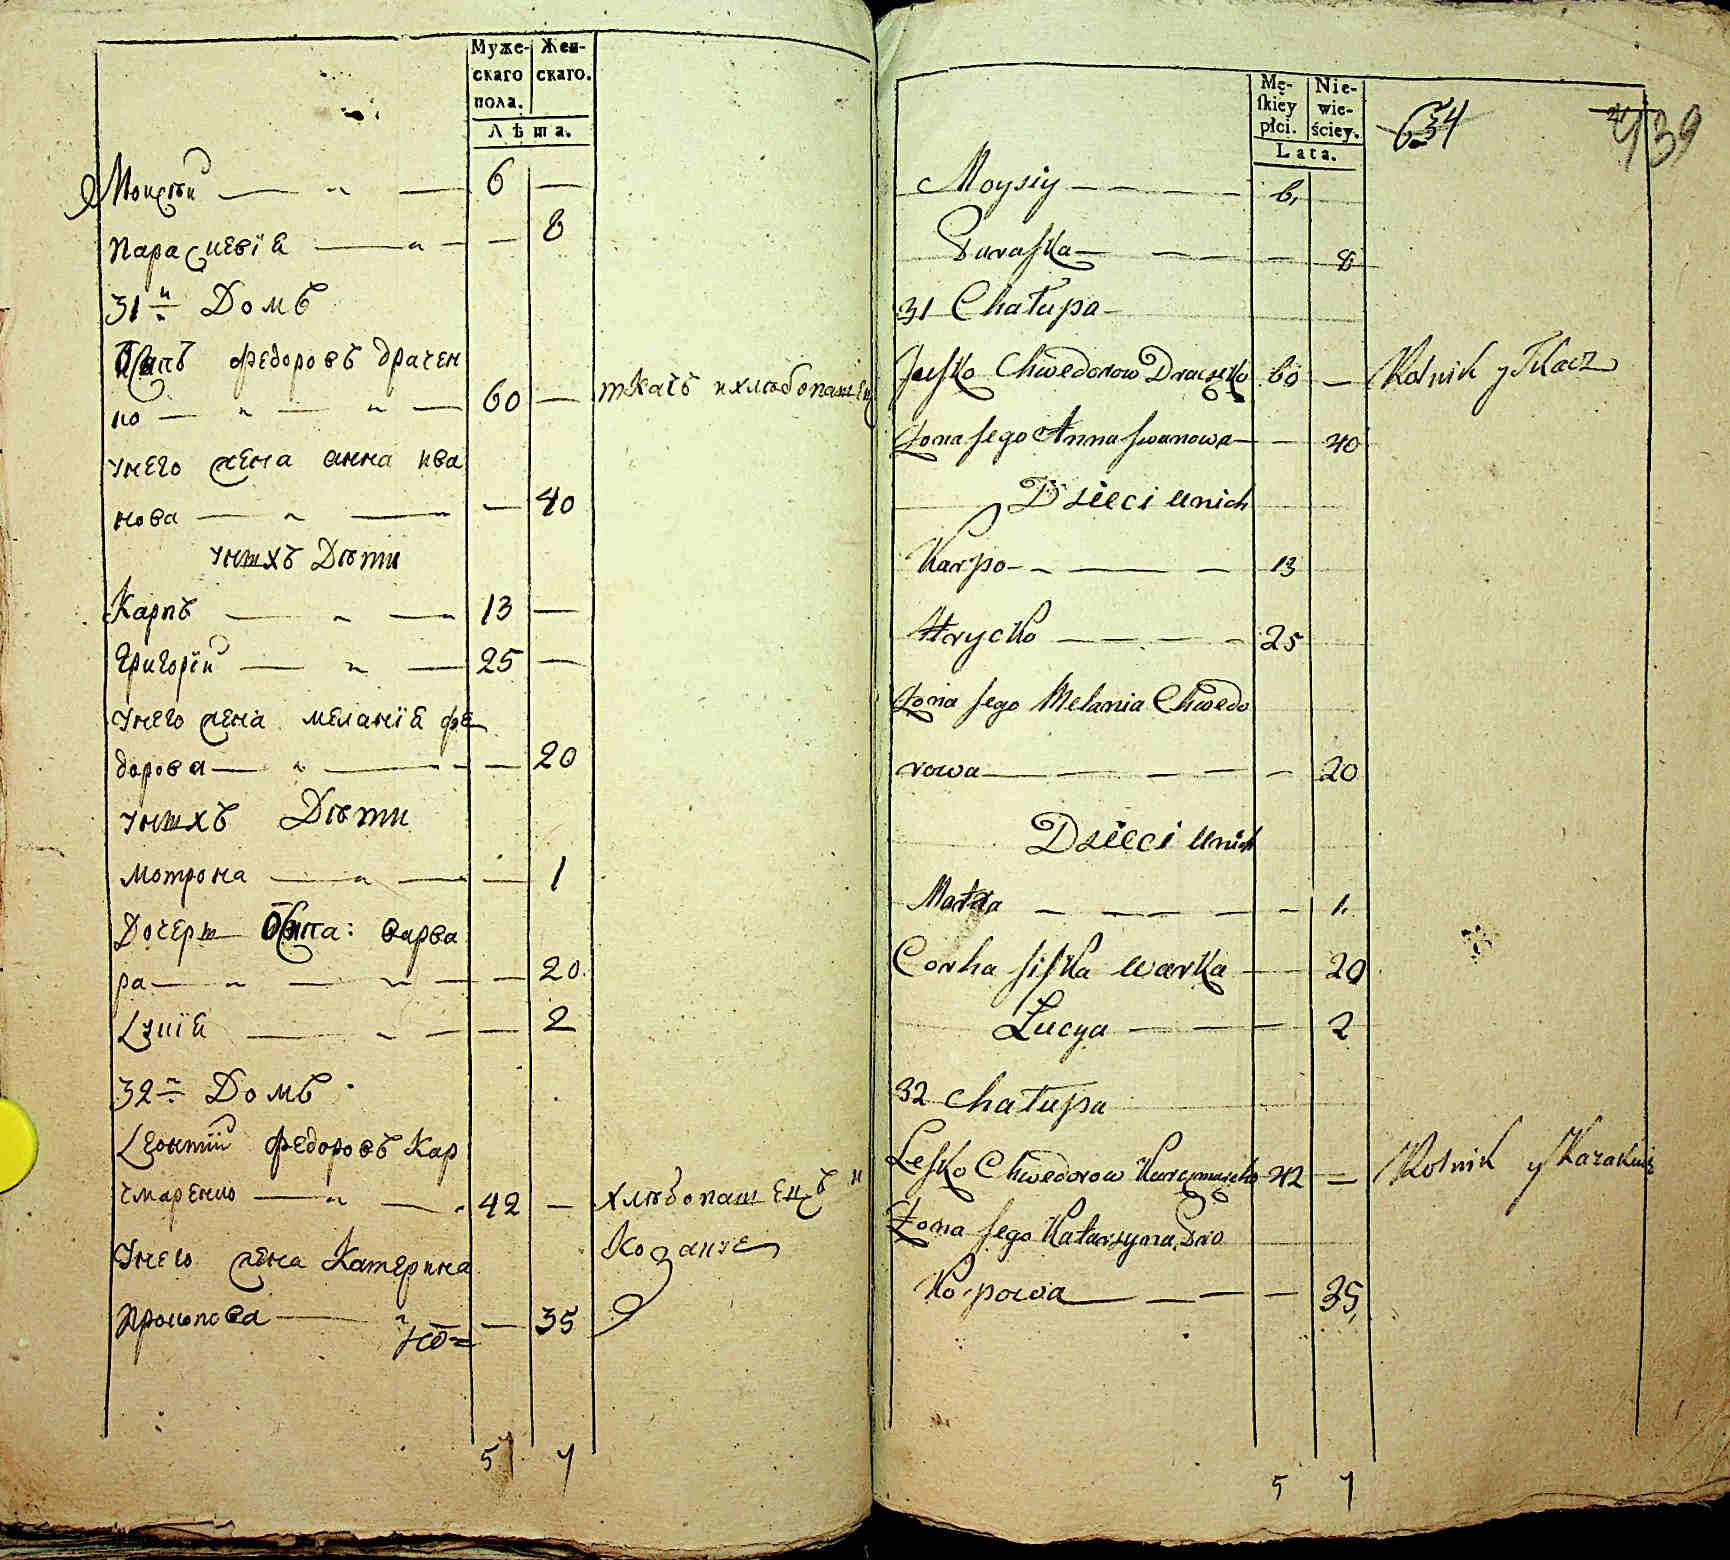 Муже-
скаго
пола.
Жен-
скаго.
Лѣта.
Моисѣй — — 6 —
Параскевiя — — 8
31й Домъ
Осипъ Федоровъ Драчен
ко — — — 60 — ткачь и хлѣбопашец
У него жена анна ива
нова — — — 40
У нихъ Дѣти
Карпъ — — 13 —
Григорiй — — 25 —
У него жена меланiя фе
дорова — — — 20
У нихъ Дѣти
Мотрона — — — 1
Дочери Осипа: варва
ра — — — — 20
Лукiя — — — 2
32й Домъ
Леонтiй Федоровъ Кар
чмаренко — — 42 — хлѣбопашецъ и
У него жена Катерина
Прокопова — — 35
5 7
Mę-
skiey
płci.
Nie-
wie-
ściey.
Lata.
634
439
Moysiy — — — — 6.
Paraska — — — — 8
31 Chałupa
Josko Chwedorow Draczko 60 — Rolnik y Tkacz
Żona Jego Anna Iwanowa — — 40
Dzieci u nich
Karpo — — — — 13
Hrycko — — — — 25
Żona Jego Melania Chwedo
rowa — — — — — 20
Dzieci u nich
— — — — — 1.
Corka Warka — — 20
Lucya — — — 2
32 chałupa
Lesko Chwedorow 42 — Rolnik y
Żona Jego Katarzyna Pro
kopowa — — — — 35
5 7